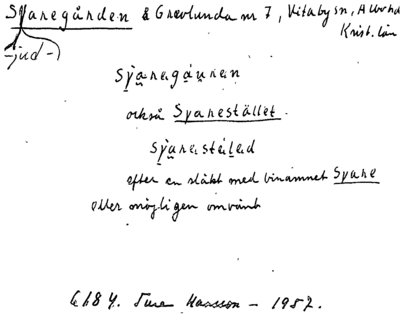 Syaregården å Grevlunda nr 7, Vitaby sn, Albo hd
Krist. län
-jud-
syaregåuren
också Syarestället.
syarestäled
efter en släkt med binamnet Syare
eller möjligen omvänt
Ture - 1957.